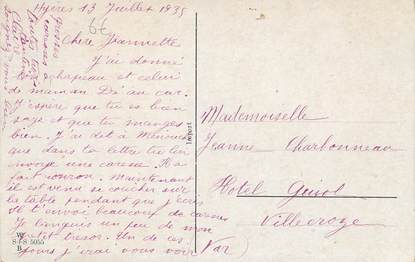 Hyères 13 Juillet 1935
Chère Jeannette
J'ai donné
ton chapeau et celui
de maman Dé au car.
J'espère que tu es bien
sage et que tu manges
bien. J'ai dit à Minouche
que dans ta lettre tu lui
envoye une caresse. Il a
fait ronron. Maintenant
il est venu se coucher sur
la table pendant que j'écris
et t'envoi beaucoup de caresses
Je languis un peu de mon
petit trésor. Un de ces
jours j'irai vous voir
Mademoiselle
Jeanne Charbonneau
Hôtel
Villecroze
Var
Import
W
S+S 5055
B
6€